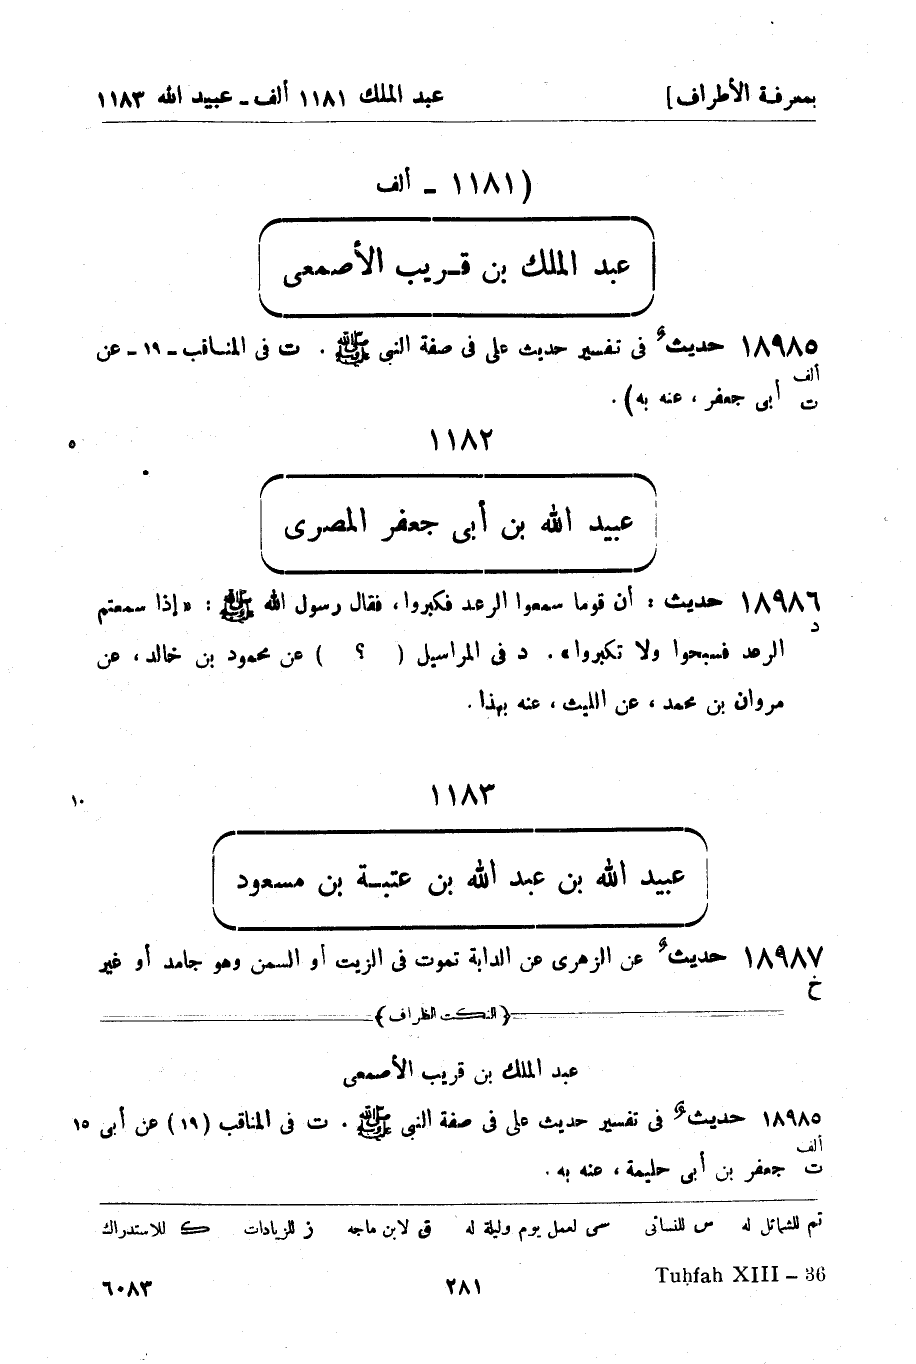 بمعرفة الأطراف] عبد الملك ١١٨١ ألف ـ عبيد الله ١١٨٣
(١١٨١ ـ ألف
عبد الملك بن قريب الأصمعى
١٨٩٨٥ حديثٌ فى تفسير حديث على فى صفة النبى ﷺ . ت فى المناقب ـ ١٩ ـ عن
ألف
ت أبى جعفر ، عنه به) .
١١٨٢
٥
عبيد الله بن أبى جعفر المصرى
١٨٩٨٦ حديث : أن قوما سمعوا الرعد فكبروا، فقال رسول الله ﷺ : «إذا سمعتم
د
الرعد فسبحوا ولا تكبروا» . د فى المراسيل ( ؟ ) عن محمود بن خالد، عن
مروان بن محمد ، عن الليث ، عنه بهذا .
١١٨٣
١٠
عبيد الله بن عبد الله بن عتبة بن مسعود
١٨٩٨٧ حديثٌ عن الزهرى عن الدابة تموت فى الزيت أو السمن وهو جامد أو غير
خ
﴿النكت الظراف﴾
عبد الملك بن قريب الأصمعى
١٨٩٨٥ حديثٌ فى تفسير حديث على فى صفة النبى ﷺ . ت فى المناقب (١٩) عن أبى ١٥
ألف
ت جعفر بن أبى حليمة ، عنه به .
تم للشمائل له س للنسائى سى لعمل يوم وليلة له ق لابن ماجه ز للزيادات ك للاستدراك
Tuḥfah XIII – 36 ٢٨١ ٦٠٨٣